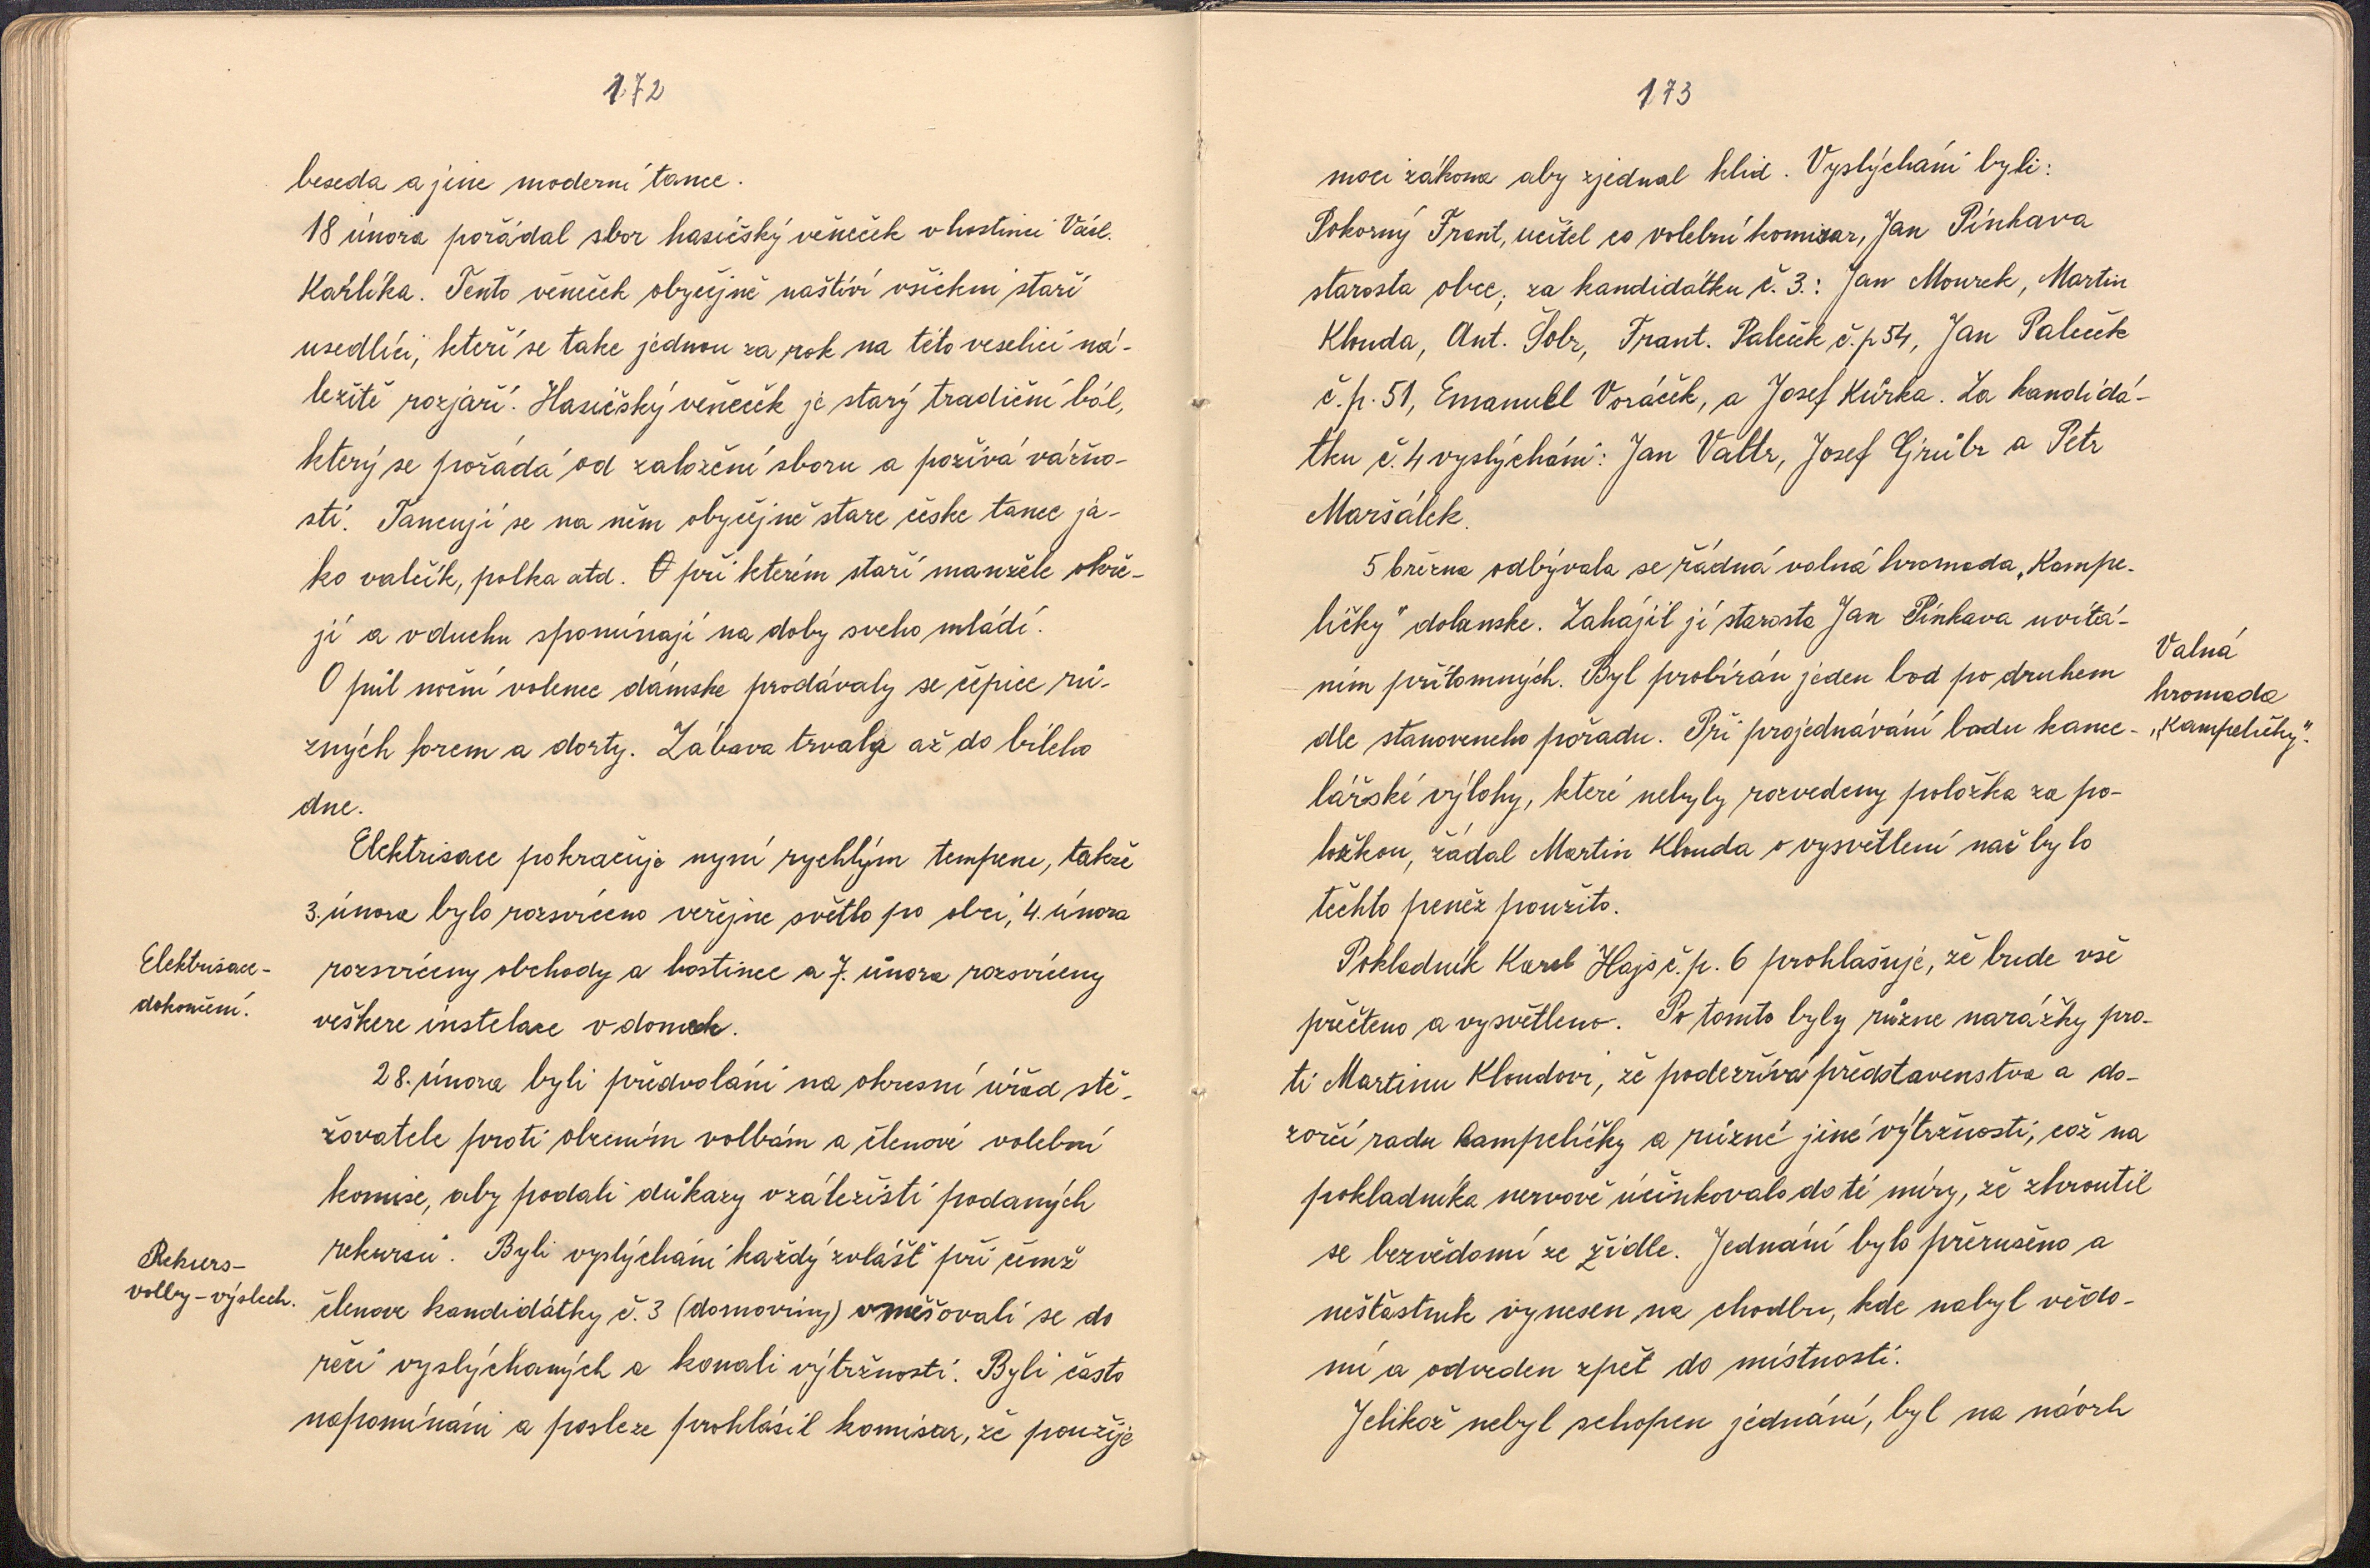 172
beseda a jine moderní tance.
18 února pořádal sbor hasičský věneček v hostinci Václ.
Karlíka. Tento věneček obyčejně naštíví všichni staří
usedlíci, kteří se take jednou za rok na této veselici ná-
ležitě rozjaří. Hasičský věneček je starý tradiční bál,
který se pořádá od založení sboru a požívá vážno-
sti. Tancují se na něm obyčejně stare česke tance ja-
ko valčík, polka atd. O při kterém staří manžele okře-
jí a v duchu spomínají na doby sveho mládí.
O půl noční volence dámske prodávaly se čepice rů-
zných forem a dorty. Zábava trvala až do bíleho
dne.
Elektrisace pokračuje nyní rychlým tempem, takže
3. února bylo rozsvíceno veřejne světlo po obci, 4. února
Elektrisace-
dokončení.
rozsvíceny obchody a hostince a 7. února rozsvíceny
veškere instelace v domech.
28. února byli předvoláni na okresní úřad stě-
žovatele proti obecním volbám a členové volební
komise, aby podali důkazy v záležišti podaných
Rekurs-
volby-výslech.
rekursů. Byli vyslýcháni každý zvlášť při čemž
členove kandidátky č. 3 (domoviny) vměšovali se do
řeči vyslýchaných a konali výtržnosti. Byli často
napomínáni a posleze prohlásil komisar, že použije
173
moci zákona aby zjednal klid. Vyslýcháni byli:
Pokorný Frant, učitel co volební komisar, Jan Pinkava
starosta obce; za kandidátku č. 3.: Jan Mourek, Martin
Klouda, Ant. Šobr, Frant. Paleček č.p 54, Jan Paleček
č.p. 51, Emanuel Voráček, a Josef Kůrka. Za kandidá-
tku č. 4 vyslýcháni: Jan Valtr, Josef Grůbr a Petr
Maršálek.
5 března odbývala se řádná valná hromada „Kampe-
ličky" dolanske. Zahájil jí starosta Jan Pinkava uvítá-
ním přítomných. Byl probírán jeden bod po druhem
dle stanoveneho pořadu. Při projednávání bodu kance-
Valná
hromada
„Kampeličky".
lářské výlohy, které nebyly rozvedeny položka za po-
ložkou, žádal Martin Klouda o vysvětlení nač bylo
těchto peněz použito.
Pokladník Karel Hajs č.p. 6 prohlašuje, že bude vše
přečteno a vysvětleno. Po tomto byly různe narážky pro-
ti Martinu Kloudovi, že podezřívá představenstva a do-
zorčí radu kampeličky a různé jiné výtržnosti, což na
pokladníka nervově účinkovalo do té míry, že zhroutil
se bezvědomí ze židle. Jednání bylo přerušeno a
nešťastník vynesen na chodbu, kde nabyl vědo-
mí a odveden zpět do místnosti.
Jelikož nebyl schopen jednání, byl na návrh